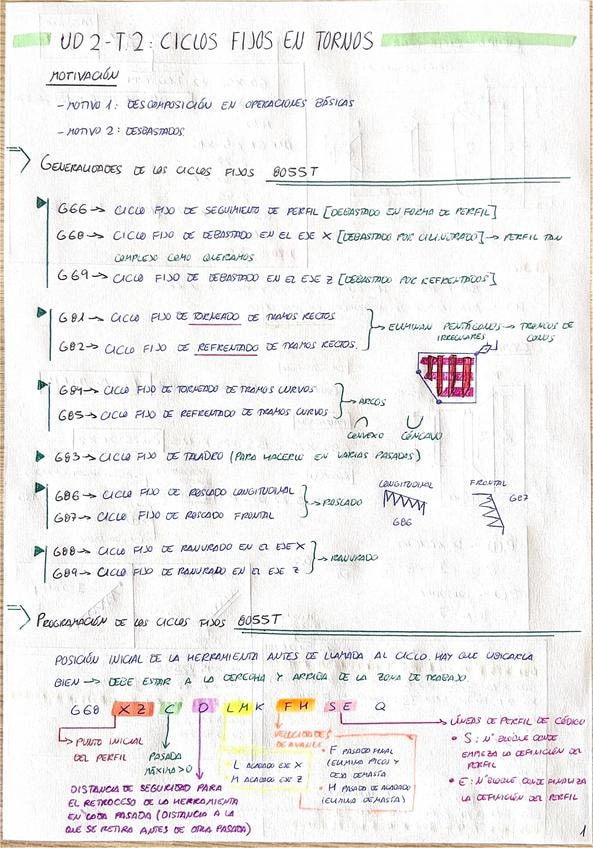 UD 2-T.2: CICLOS FIJOS EN TORNOS
MOTIVACIÓN
- MOTIVO 1: DESCOMPOSICIÓN EN OPERACIONES BÁSICAS
- MOTIVO 2: DESBASTADOS
GENERALIDADES DE LOS CICLOS FIJOS 8055T
G66 → CICLO FIJO DE SEGUIMIENTO DE PERFIL [DEBASTADO EN FORMA DE PERFIL]
G68 → CICLO FIJO DE DEBASTADO EN EL EJE X [DEBASTADO POR CILINDRADO] → PERFIL TAN
COMPLEJO COMO QUERAMOS
G69 → CICLO FIJO DE DEBASTADO EN EL EJE Z [DEBASTADO POR REFRENTADOS]
G81 → CICLO FIJO DE TORNEADO DE TRAMOS RECTOS
G82 → CICLO FIJO DE REFRENTADO DE TRAMOS RECTOS.
→ ELIMINAN PENTÁGONOS → TRONCOS DE
IRREGULARES CONOS
G84 → CICLO FIJO DE TORNEADO DE TRAMOS CURVOS
G85 → CICLO FIJO DE REFRENTADO DE TRAMOS CURVOS
→ ARCOS
CONVEXO CÓNCAVO
G83 → CICLO FIJO DE TALADRO (PARA HACERLO EN VARIAS PASADAS)
G86 → CICLO FIJO DE ROSCADO LONGITUDINAL
G87 → CICLO FIJO DE ROSCADO FRONTAL
→ ROSCADO
LONGITUDINAL
G86
FRONTAL
G87
G88 → CICLO FIJO DE RANURADO EN EL EJE X
G89 → CICLO FIJO DE RANURADO EN EL EJE Z
→ RANURADO
PROGRAMACIÓN DE LOS CICLOS FIJOS 8055T
POSICIÓN INICIAL DE LA HERRAMIENTA ANTES DE LLAMADA AL CICLO. HAY QUE UBICARLA
BIEN → DEBE ESTAR A LA DERECHA Y ARRIBA DE LA ZONA DE TRABAJO.
G68 X Z C D L M K F H S E Q
→ PUNTO INICIAL
DEL PERFIL
PASADA
MÁXIMA > 0
DISTANCIA DE SEGURIDAD PARA
EL RETROCESO DE LA HERRAMIENTA
EN CADA PASADA (DISTANCIA A LA
QUE SE RETIRA ANTES DE OTRA PASADA)
L ACABADO EJE X
M ACABADO EJE Z
VELOCIDADES
DE AVANCE
• F PASADO FINAL
(ELIMINA PICOS Y
DEJA DEMASÍA)
• H PASADO DE ACABADO
(ELIMINA DEMASÍA)
→ LÍNEAS DE PERFIL DE CÓDIGO
• S: Nº BLOQUE DONDE
EMPIEZA LA DEFINICIÓN DEL
PERFIL
• E: Nº BLOQUE DONDE FINALIZA
LA DEFINICIÓN DEL PERFIL
1